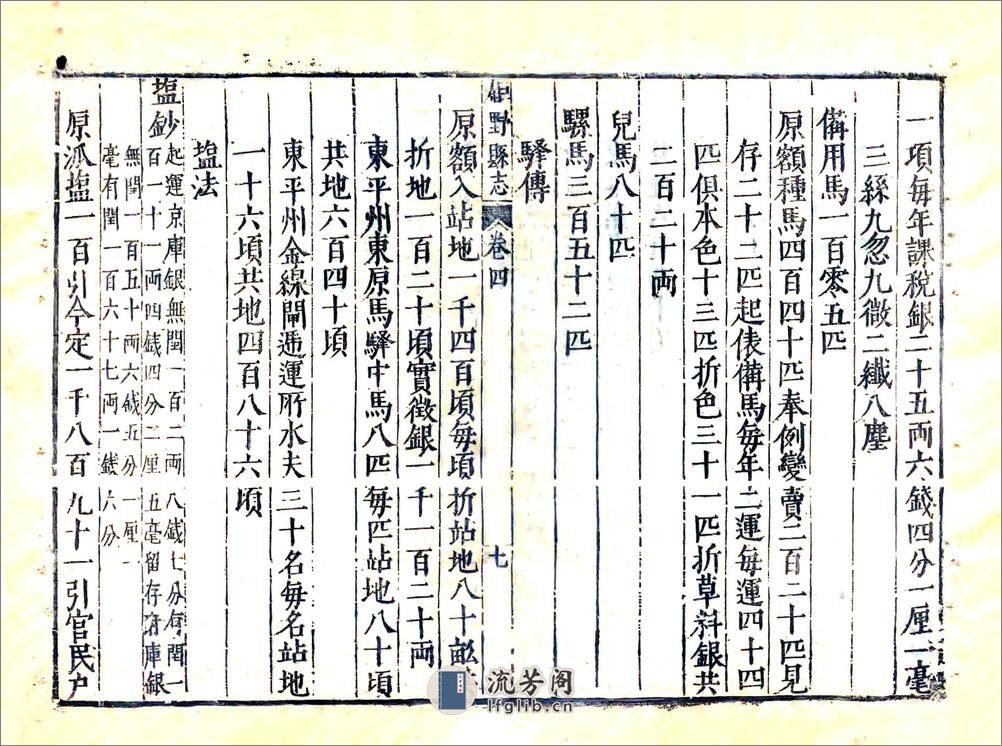 一項每年課稅銀二十五兩六錢四分一厘一毫
三絲九忽九微二纖八塵
備用馬一百零五匹
原額種馬四百四十匹奉例變賣二百二十匹見
存二十二匹起俵備馬每年二運每運四十四
匹俱本色十三匹折色三十一匹折草料銀共
二百二十兩
兒馬八十匹
騍馬三百五十二匹
驛傳
野縣志 卷四 七
原額入站地一千四百頃每頃折站地八十畝
折地一百二十頃實徵銀一千一百二十兩
東平州東原馬驛中馬八匹每匹站地八十頃
共地六百四十頃
東平州金線閘遞運所水夫三十名每名站地
一十六頃共地四百八十六頃
塩法
塩鈔
起運京庫銀無閏一百二兩八錢七分有閏一
百一十一兩四錢四分二厘五毫留存府庫銀
無閏一百五十兩六錢五分一厘一
毫有閏一百六十七兩一錢六分
原派塩一百引今定一千八百九十一引官民户
流芳阁
lfglib.cn